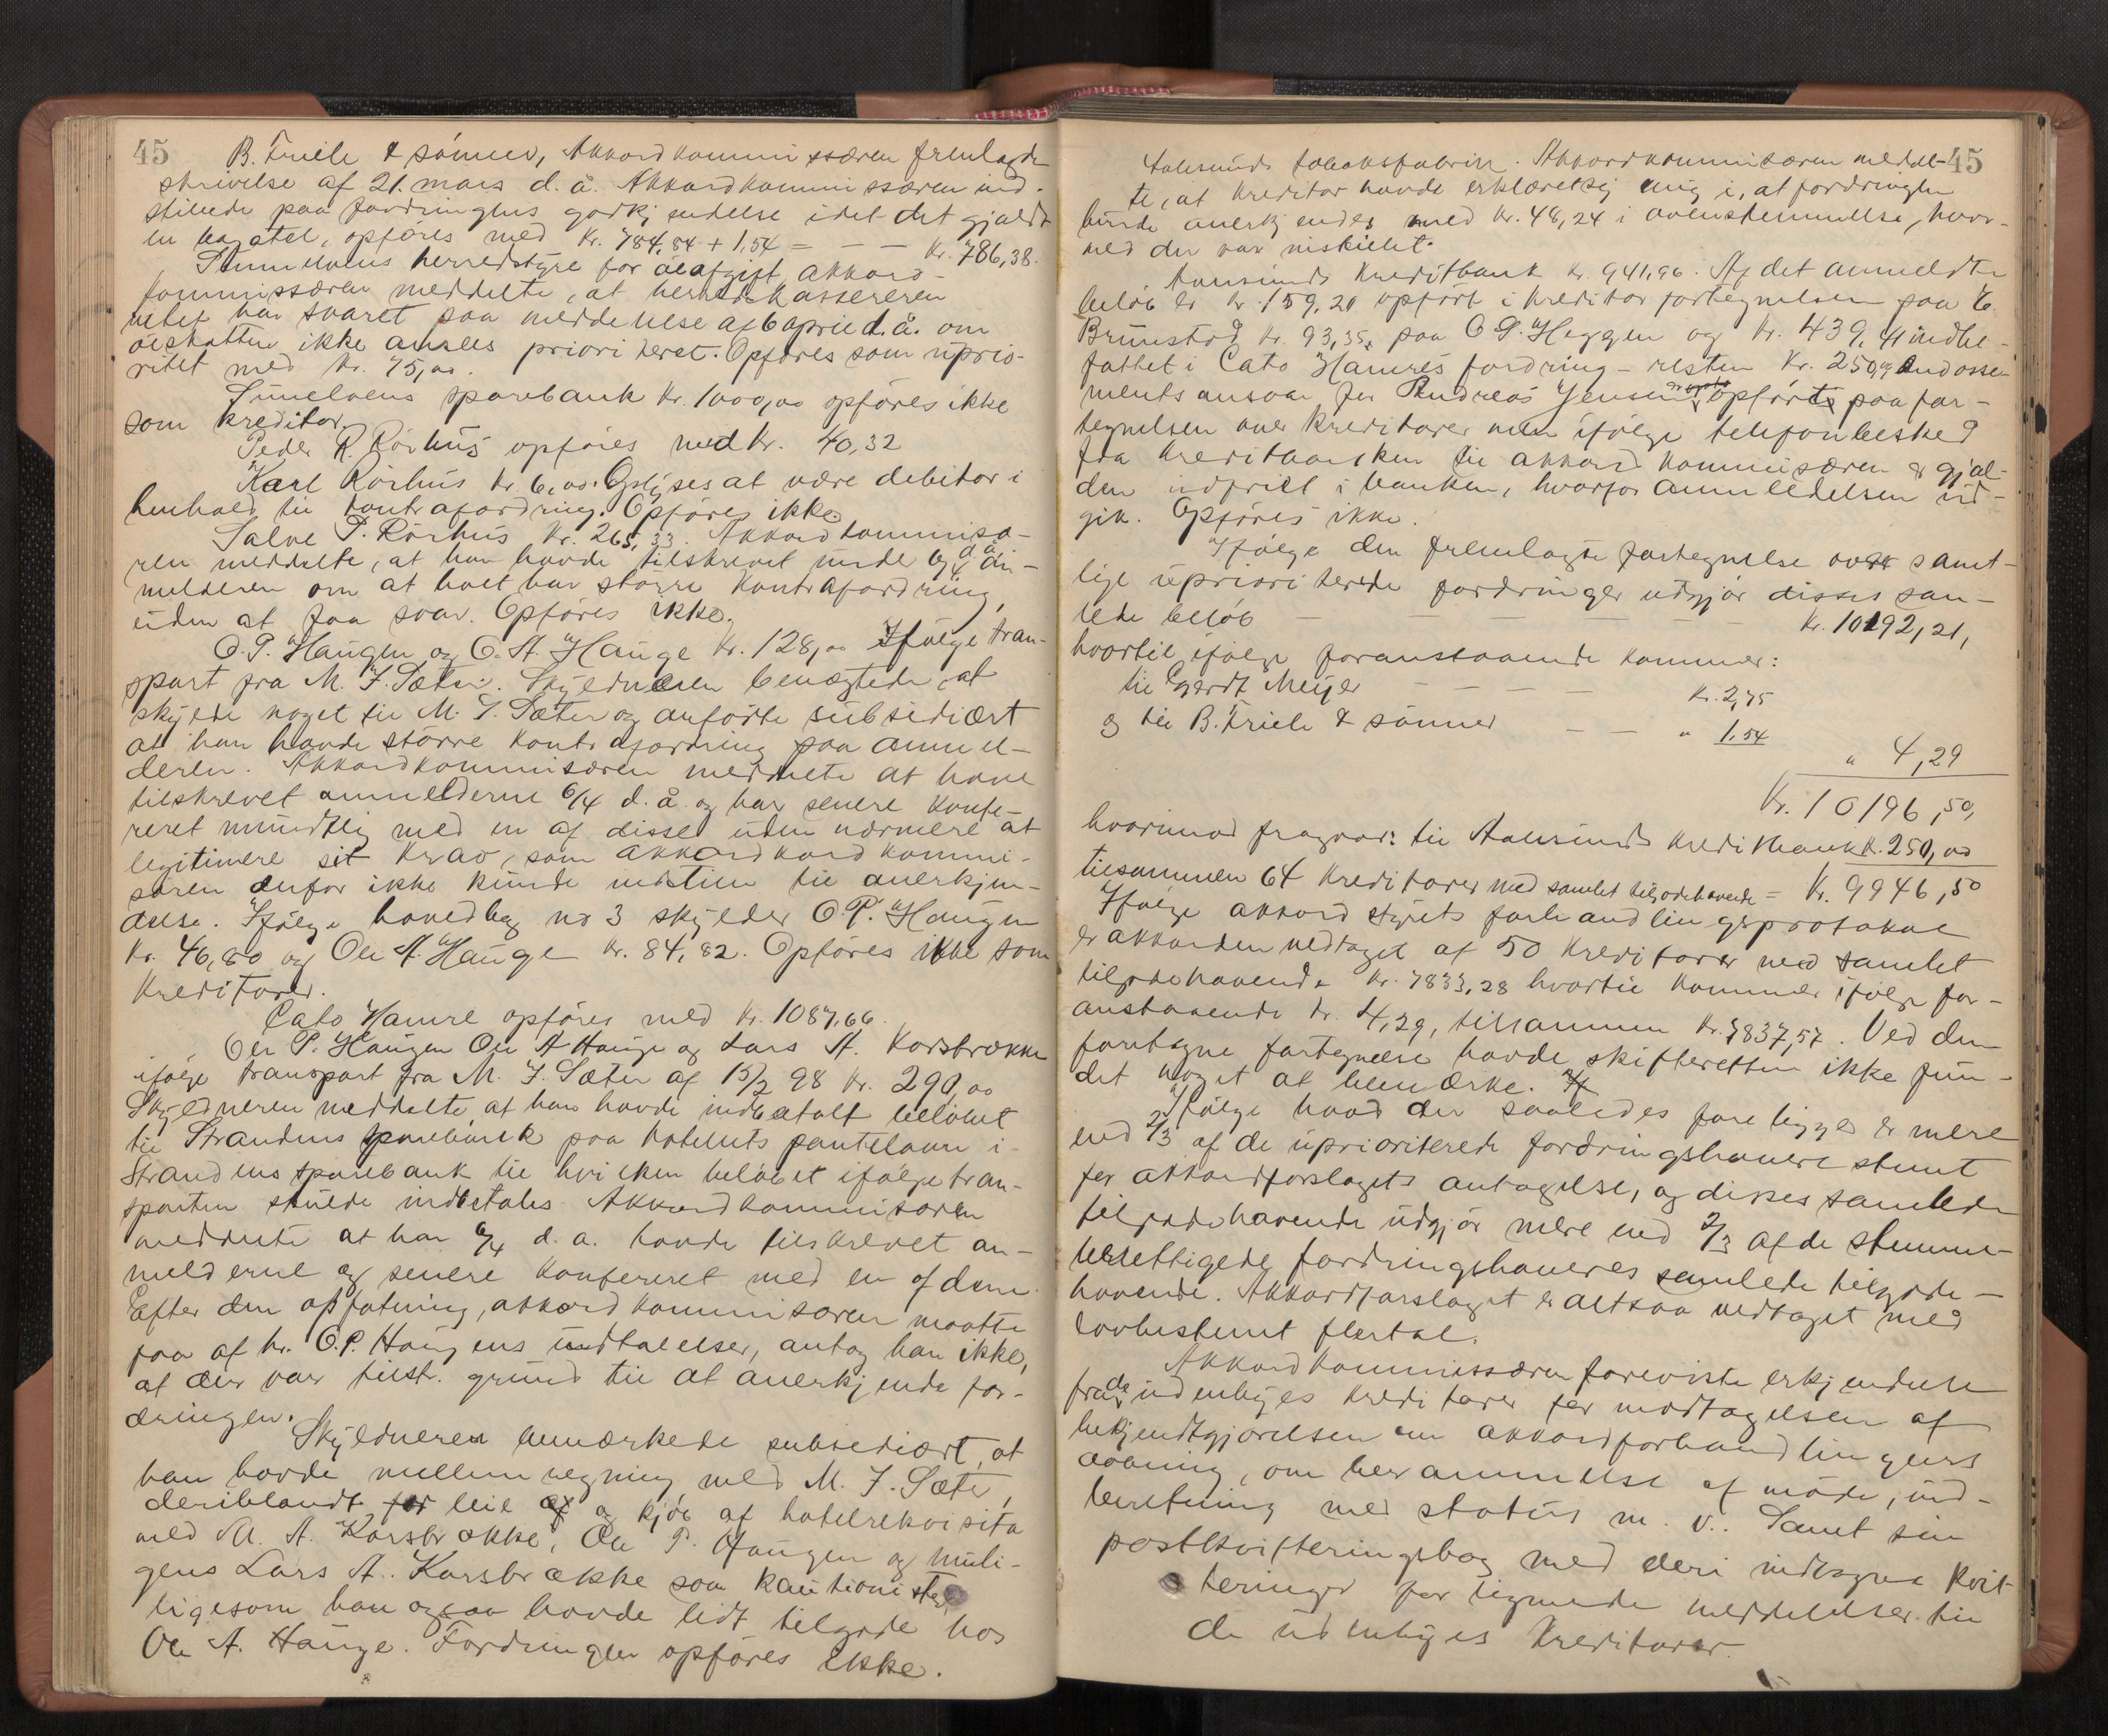 45
B. Friele & sönner, Akkordkommissæren fremlagde
skrivelse af 21. mars d. å. Akkordkommissæren ind-
stillede paa fordringens godkjendelse idet det gjaldt
en bagatel, opföres med Kr. 784,84 + 1,54 = — — Kr. 786,38.
Sunnelvens herredstyre for ölafgift akkord-
kommissæren meddelte, at herredskassereren
intet har svaret paa meddelelse af 6 april d. å. om
ölskatten ikke ansees prioriteret. Opföres som uprio-
ritet med Kr. 75,00.
Sunelvens sparebank Kr. 1000,00 opföres ikke
som kreditor.
Peder R. Rörhus opföres med Kr. 40,32
Karl Rörhus Kr 6,00. Oplyses at være debitor i
henhold til kontrafordring. Opföres ikke.
Salve P. Rörhus Kr. 265,33. Akkordkommisæ-
ren meddelte, at han havde tilskrevet under 6/4 d. å. an-
melderen om at boet har större kontrafordring,
uden at faa svar. Opföres ikke.
O. P. Haugen og O. A. Hauge Kr. 128,00 Ifölge tran-
sport fra M. J. Sæter. Skyldneren benægtede, at
skylde noget til M. J. Sæter og anförte subsidiært
at han havde större kontrafordring paa anmel-
deren. Akkordkommisæren meddelte at have
tilskrevet anmelderne 6/4 d. å. og har senere konfe-
reret mundtlig med en af disse uden nærmere at
legitimere sit krav, som akkordkord kommi-
særen derfor ikke kunde indstille til anerkjen-
delse. Ifölge hovedbog no 3 skylder O. P. Haugen
Kr. 46,80 og Ole A. Hauge Kr. 84,82. Opföres ikke som
Kreditorer.
Cato Hamre opföres med Kr. 1087,66.
Ole P. Haugen Ole A Hauge og Lars A. Korsbrække
ifölge transport fra M. J. Sæter af 15/2 98 Kr. 290,00
Skyldneren meddelte at han havde indbetalt belöbet
til Strandens sparebank paa hotellets pantelaan i
Strandens sparebank til hvilken belöbet ifölge tran-
sporten skulde indbetales. Akkordkommisæren
meddelte at han 6/4 d. a. havde tilskrevet an-
melderne og senere konfereret med en af dem.
Efter den opfatning, akkordkommisæren maatte
faa af hr. O. P. Haugens undtalelser, antog han ikke,
at der var tilstr. grund til at anerkjende for-
dringen.
Skyldneren bemærkede subsediært, at
han havde mellemregning med M. J. Sæter,
deriblandt for leie af og kjöb af hotelrekvisita
med M. A. Korsbrække, Ole P. Haugen og muli-
gens Lars A. Korsbrække som kautionister
ligesom han ogsaa havde lidt tilgode hos
Ole A. Hauge. Fordringen opföres ikke.
45
Aalesunds tobaksfabrik. Akkordkommisæren meddel-
te, at kreditor havde erklæret sig enig i, at fordringen
burde anerkjendes med Kr. 48,24 i overensstemmelse, hvor-
med der var indstillet.
Aalesunds Kreditbank Kr. 941,96. Af det anmeldte
belöb er Kr. 159,20 opfört i kreditorfortegnelsen paa E.
Brunstad Kr. 93,35, paa O P. Heggen og Kr. 439,41 indbe-
fattet i Cato Hamres fordring – resten Kr. 250,00 Endosse-
mentsansvar for Andreas Jensen er opfört paa for-
tegnelsen over kreditorer men ifölge telefonbesked
fra kreditbanken til akkordkommisæren er gjæl-
den indfriet i banken, hvorfor anmeldelsen ud-
gik. Opföres ikke.
Ifölge den fremlagte fortegnelse over samt-
lige uprioriterede fordringer udgjör disses sam-
lede belöb — — — — — Kr. 10192,21,
hvortil ifölge foranstaaende kommer:
til Gerdt Meijer — — — Kr. 2,75
og til B. Friele & sönner — — " 1,54
" 4,29
Kr. 10196,50,
hvorimod fragaar: til Aalesunds Kreditbank K. 250,00
tilsammen 64 Kreditorer med samlet tilgodehavende = Kr. 9946,50
Ifölge akkordstyrets forhandlingsprotokol
er akkorden vedtaget af 50 Kreditorer med samlet
tilgodehavende Kr. 7833,28 hvortil kommer ifölge for-
anstaaende Kr. 4,29, tilsammen Kr. 7837,57. Ved den
foretagne fortegnelse havde skifteretten ikke fun-
det noget at bemærke.
Ifölge hvad der saaledes foreligger er mere
end 2/3 af de uprioriterede fordringshavere stemt
for akkordforslagets antagelse, og disses samlede
tilgodehavende udgjör mere end 2/3 af de stemme-
berettigede fordringshaveres samlede tilgode-
havende. Akkordforslaget er altsaa vedtaget med
lovbestemt flertal.
Akkordkommissæren foreviste erkjendelse
fra de udenbyes kreditorer for modtagelsen af
bekjendtgjörelsen om akkordforhandlingens
aabning, om berammelse af möde, ind-
beretning med status m. v.. Samt sin
postkvitteringsbog med deri indtagne kvit-
teringer for lignende meddelelser til
de udenbyes Kreditorer.